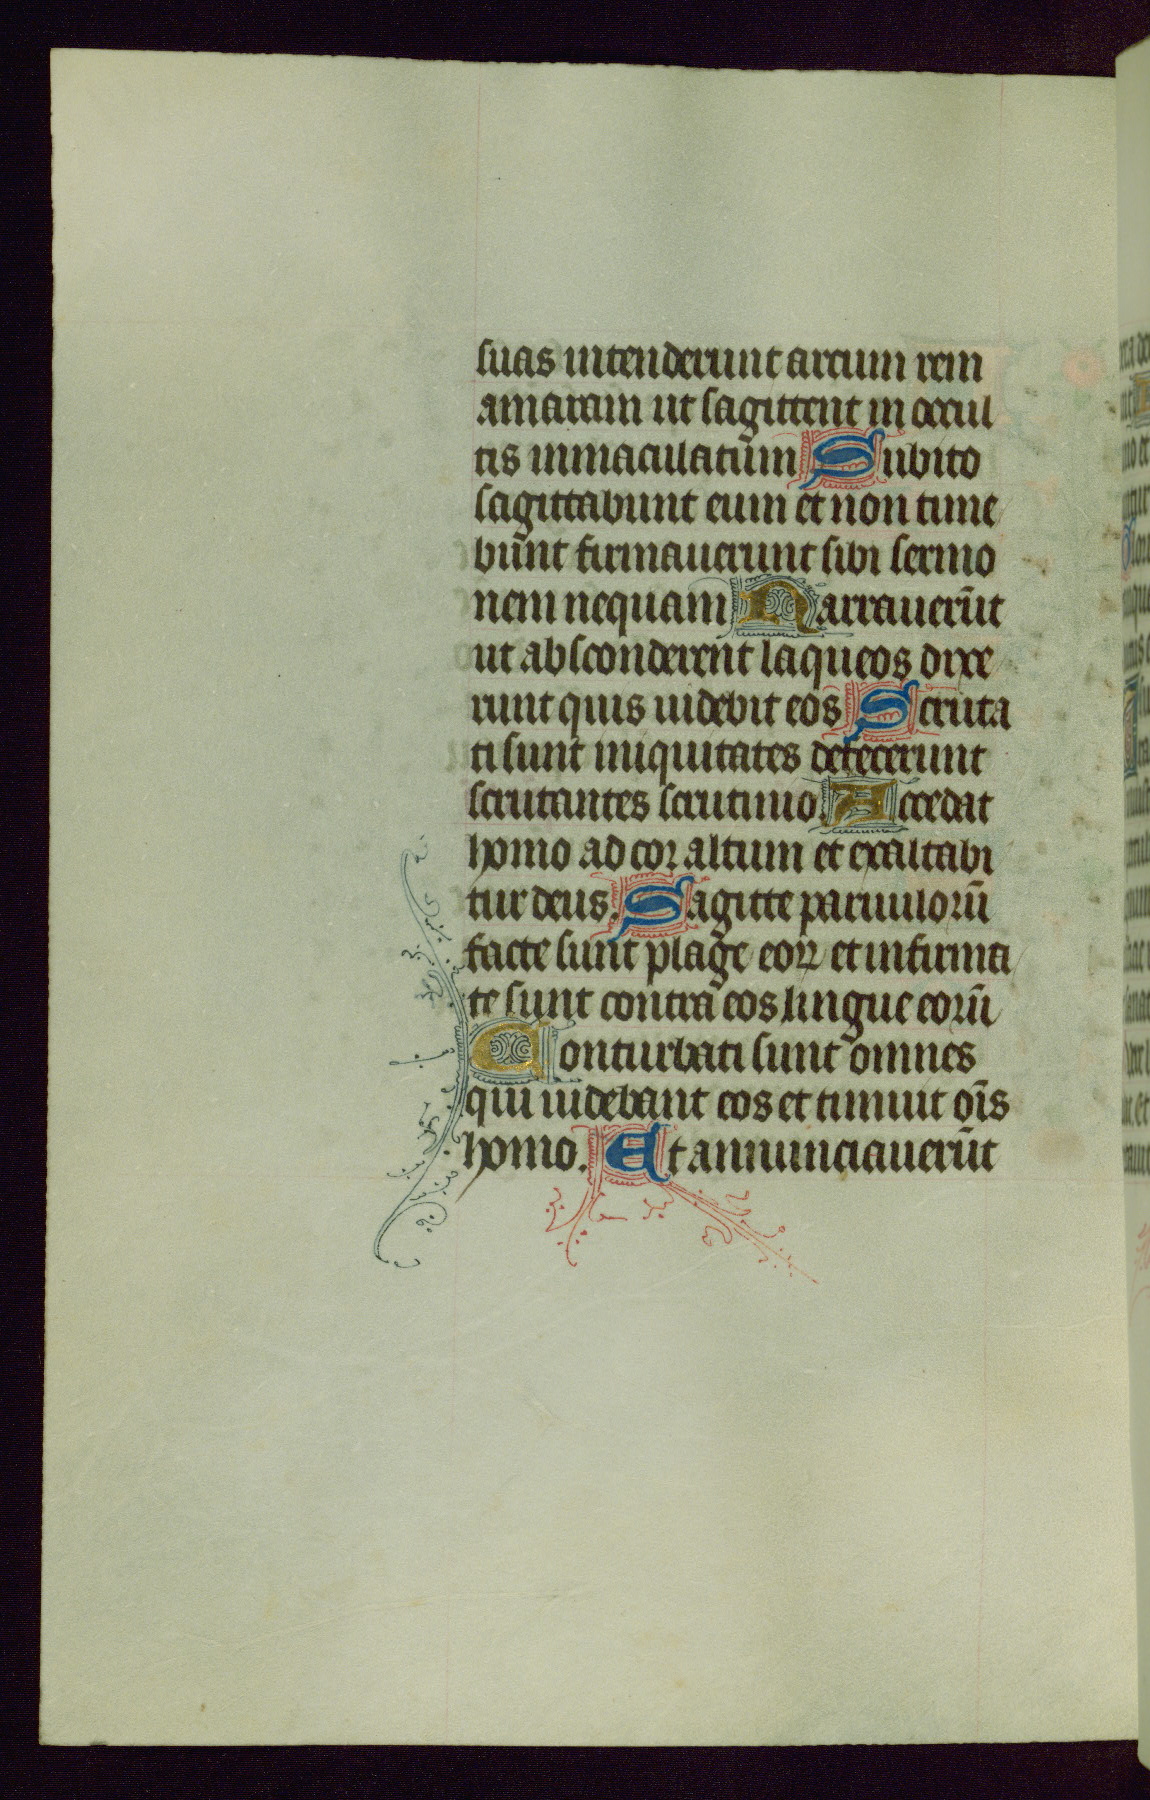 suas intenderunt arcum rem
amaram ut sagittent in occul
tis inmaculatum Subito
sagittabunt eum et non time
bunt firmauerunt sibi sermo
nem nequam Narrauerūt
ut absconderent laqueos dixe
runt quis uidebit eos Scruta
ti sunt iniquitates defecerunt
scrutantes scrutinio. Accedat
homo ad cor altum et exaltabi
tur deus. Sagitte paruulorū
facte sunt plage eoꝝ et infirma
te sunt contra eos lingue eorū
Conturbati sunt omnes
qui uidebant eos et timuit oīs
homo. Et annunciauerūt